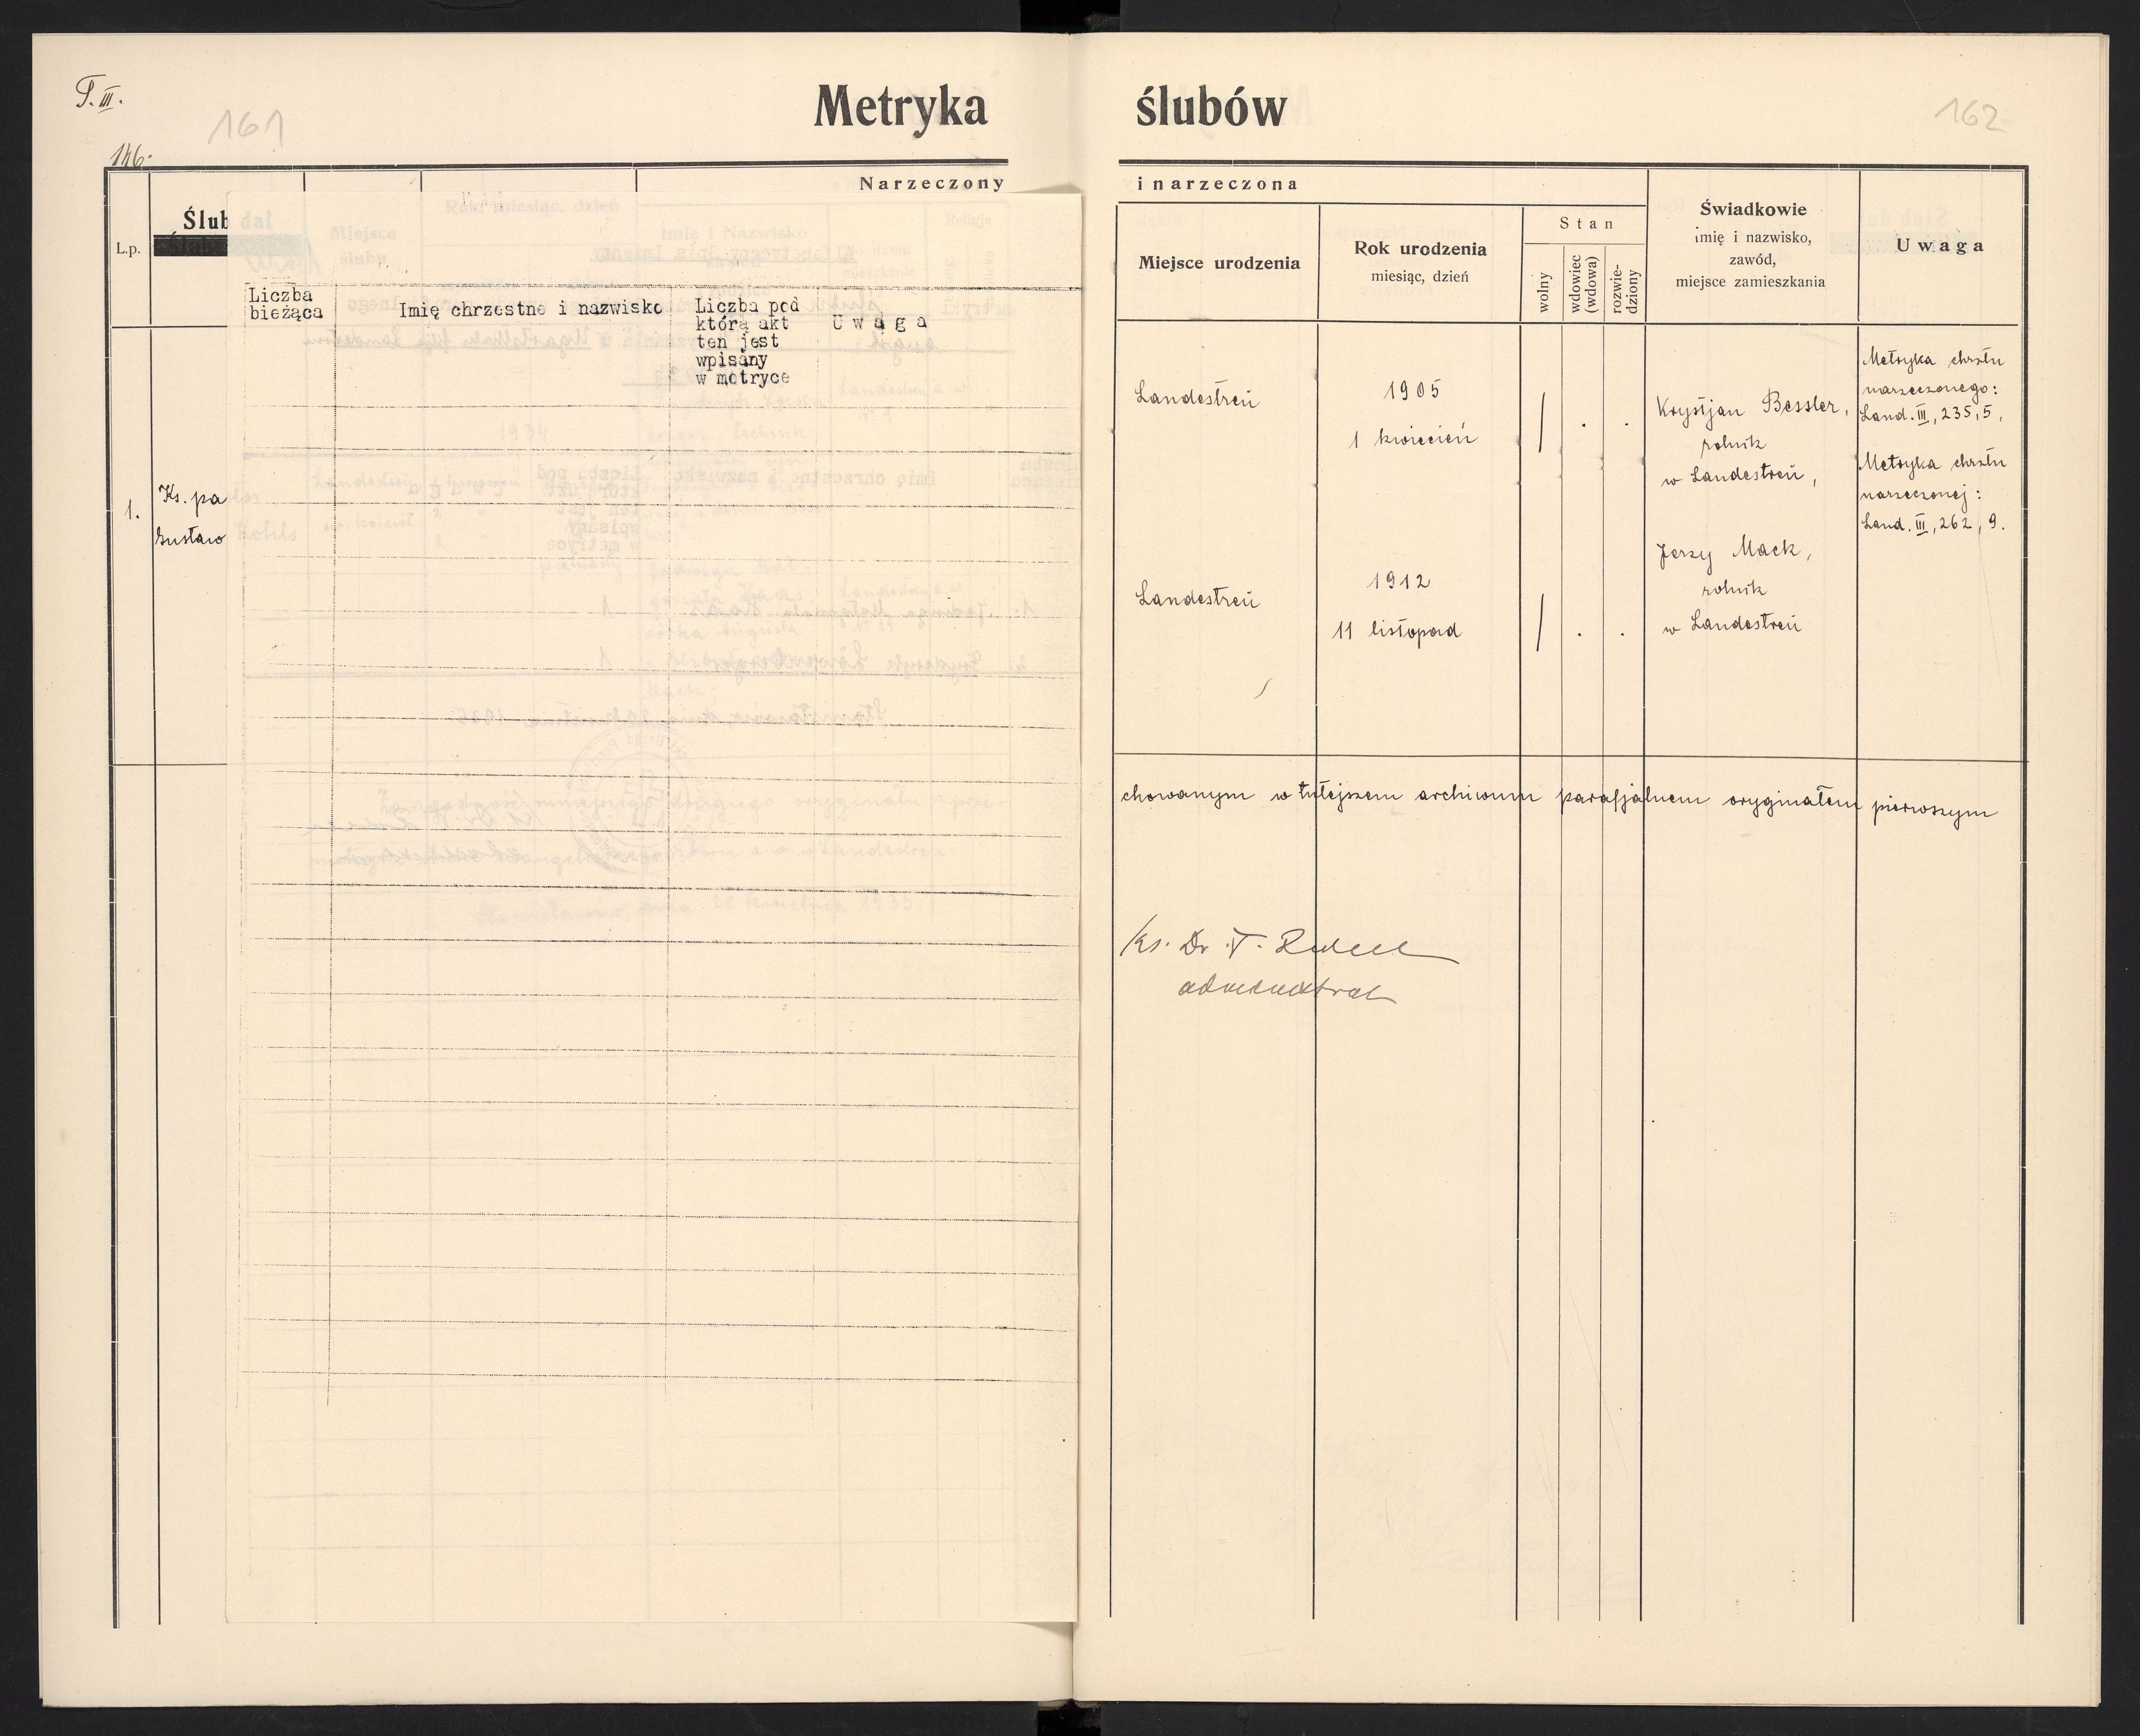 T. III.
161
146.
Metryka ślubów
162
Narzeczony i narzeczona
L.p.
Ślub
Miejsce urodzenia
Rok urodzenia
miesiąc, dzień
Stan
wolny
wdowiec
(wdowa)
rozwie-
dziony
Świadkowie
imię i nazwisko,
zawód,
miejsce zamieszkania
Uwaga
Liczba
bieżąca
Imię chrzestne i nazwisko
Liczba pod
którą akt
ten jest
wpisany
w metryce
Uwaga
1.
Ks. pa
Gustaw
Landestreu
1905
1 kwiecień
Krystjan Bessler,
rolnik
w Landestreu,
Metryka chrztu
narzeczonego:
Land. III, 235, 5,
Metryka chrztu
narzeczonej:
Land. III, 262, 9.
Landestreu
1912
11 listopad
Jerzy Mack,
rolnik
w Landestreu
chowanym w tutejszem archiwum parafjalnem oryginałem pierwszym
Ks. Dr